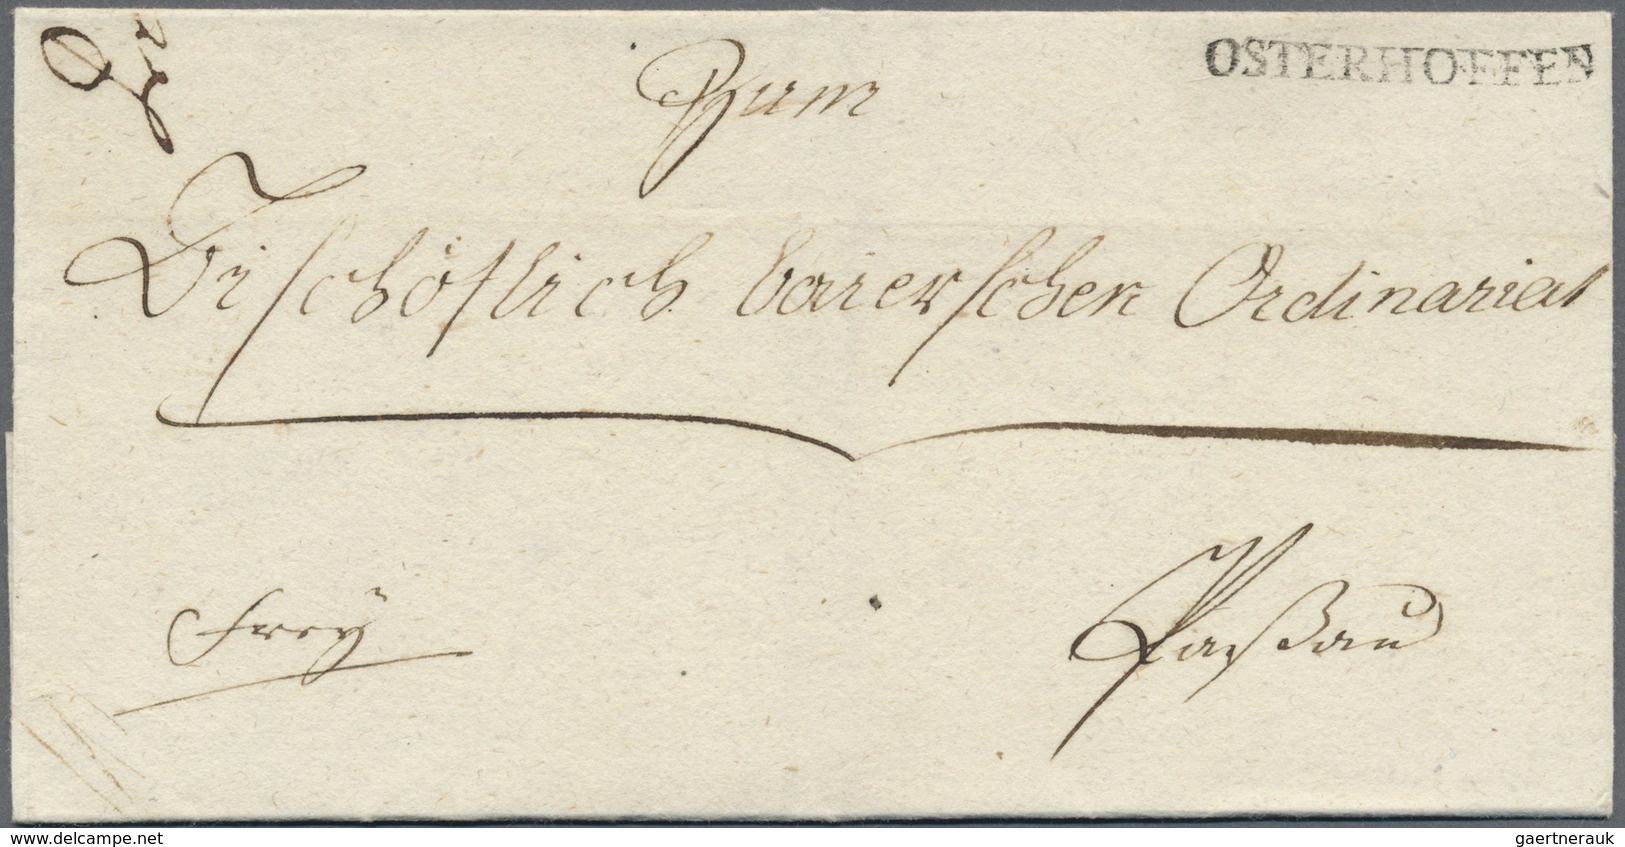 OSTERHOFFEN
Zum
Bischöflich baierschen Ordinariat
Frey
Paßau
www.delcampe.net
gaertnerauk